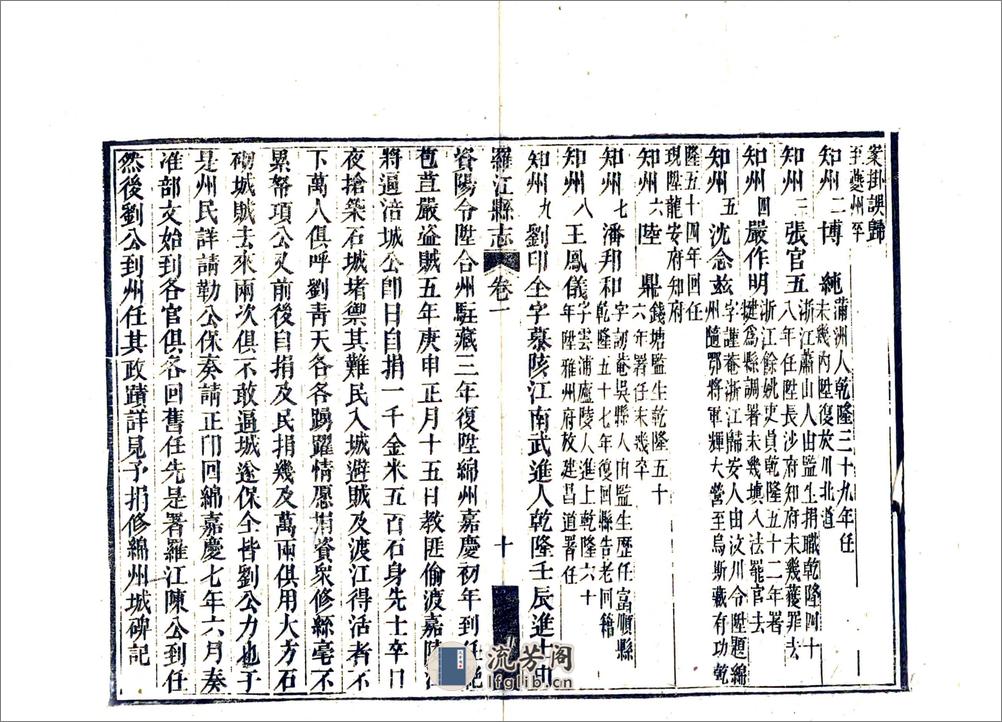 案掛誤歸
至夔州卒
知州二博　純蒲洲人乾隆三十九年任
未幾內陞復放川北道
知州三張官五浙江蕭山人由監生捐職乾隆四十
八年任陞長沙府知府未幾獲罪去
知州四嚴作明浙江餘姚吏員乾隆五十二年署
犍爲縣調署未幾填入法罷官去
知州五沈念茲字謹菴浙江歸安人由汶川令陞題綿
州隨鄂將軍輝大營至烏斯藏有功乾
隆五十四年回任
現陞龍安府知府
知州六陸　鼎錢塘監生乾隆五十
六年署任未幾卒
知州七潘邦和字訒菴吳縣人由監生歷任富順縣
乾隆五十七年復回縣告老回籍
知州八王鳳儀字雲浦廬陵人進士乾隆六十
年陞雅州府放建昌道署任
知州九劉印全字慕陔江南武進人乾隆壬辰進士由
羅江縣志　卷一　十
資陽令陞合州駐藏三年復陞綿州嘉慶初年到任絕
苞苴嚴盜賊五年庚申正月十五日教匪偷渡嘉陵江
將逼涪城公即日自捐一千金米五百石身先士卒日
夜搶築石城堵禦其難民入城避賊及渡江得活者不
下萬人俱呼劉青天各各踴躍情愿捐資衆修縣毫不
累帑項公又前後自捐及民捐幾及萬兩俱用大方石
砌城賊去來兩次俱不敢逼城遂保全皆劉公力也于
是州民詳請勒公保奏請正印回綿嘉慶七年六月奏
准部文始到各官俱各回舊任先是署羅江陳公到任
然後劉公到州任其政蹟詳見予捐修綿州城碑記
流芳阁
lfglib.cn